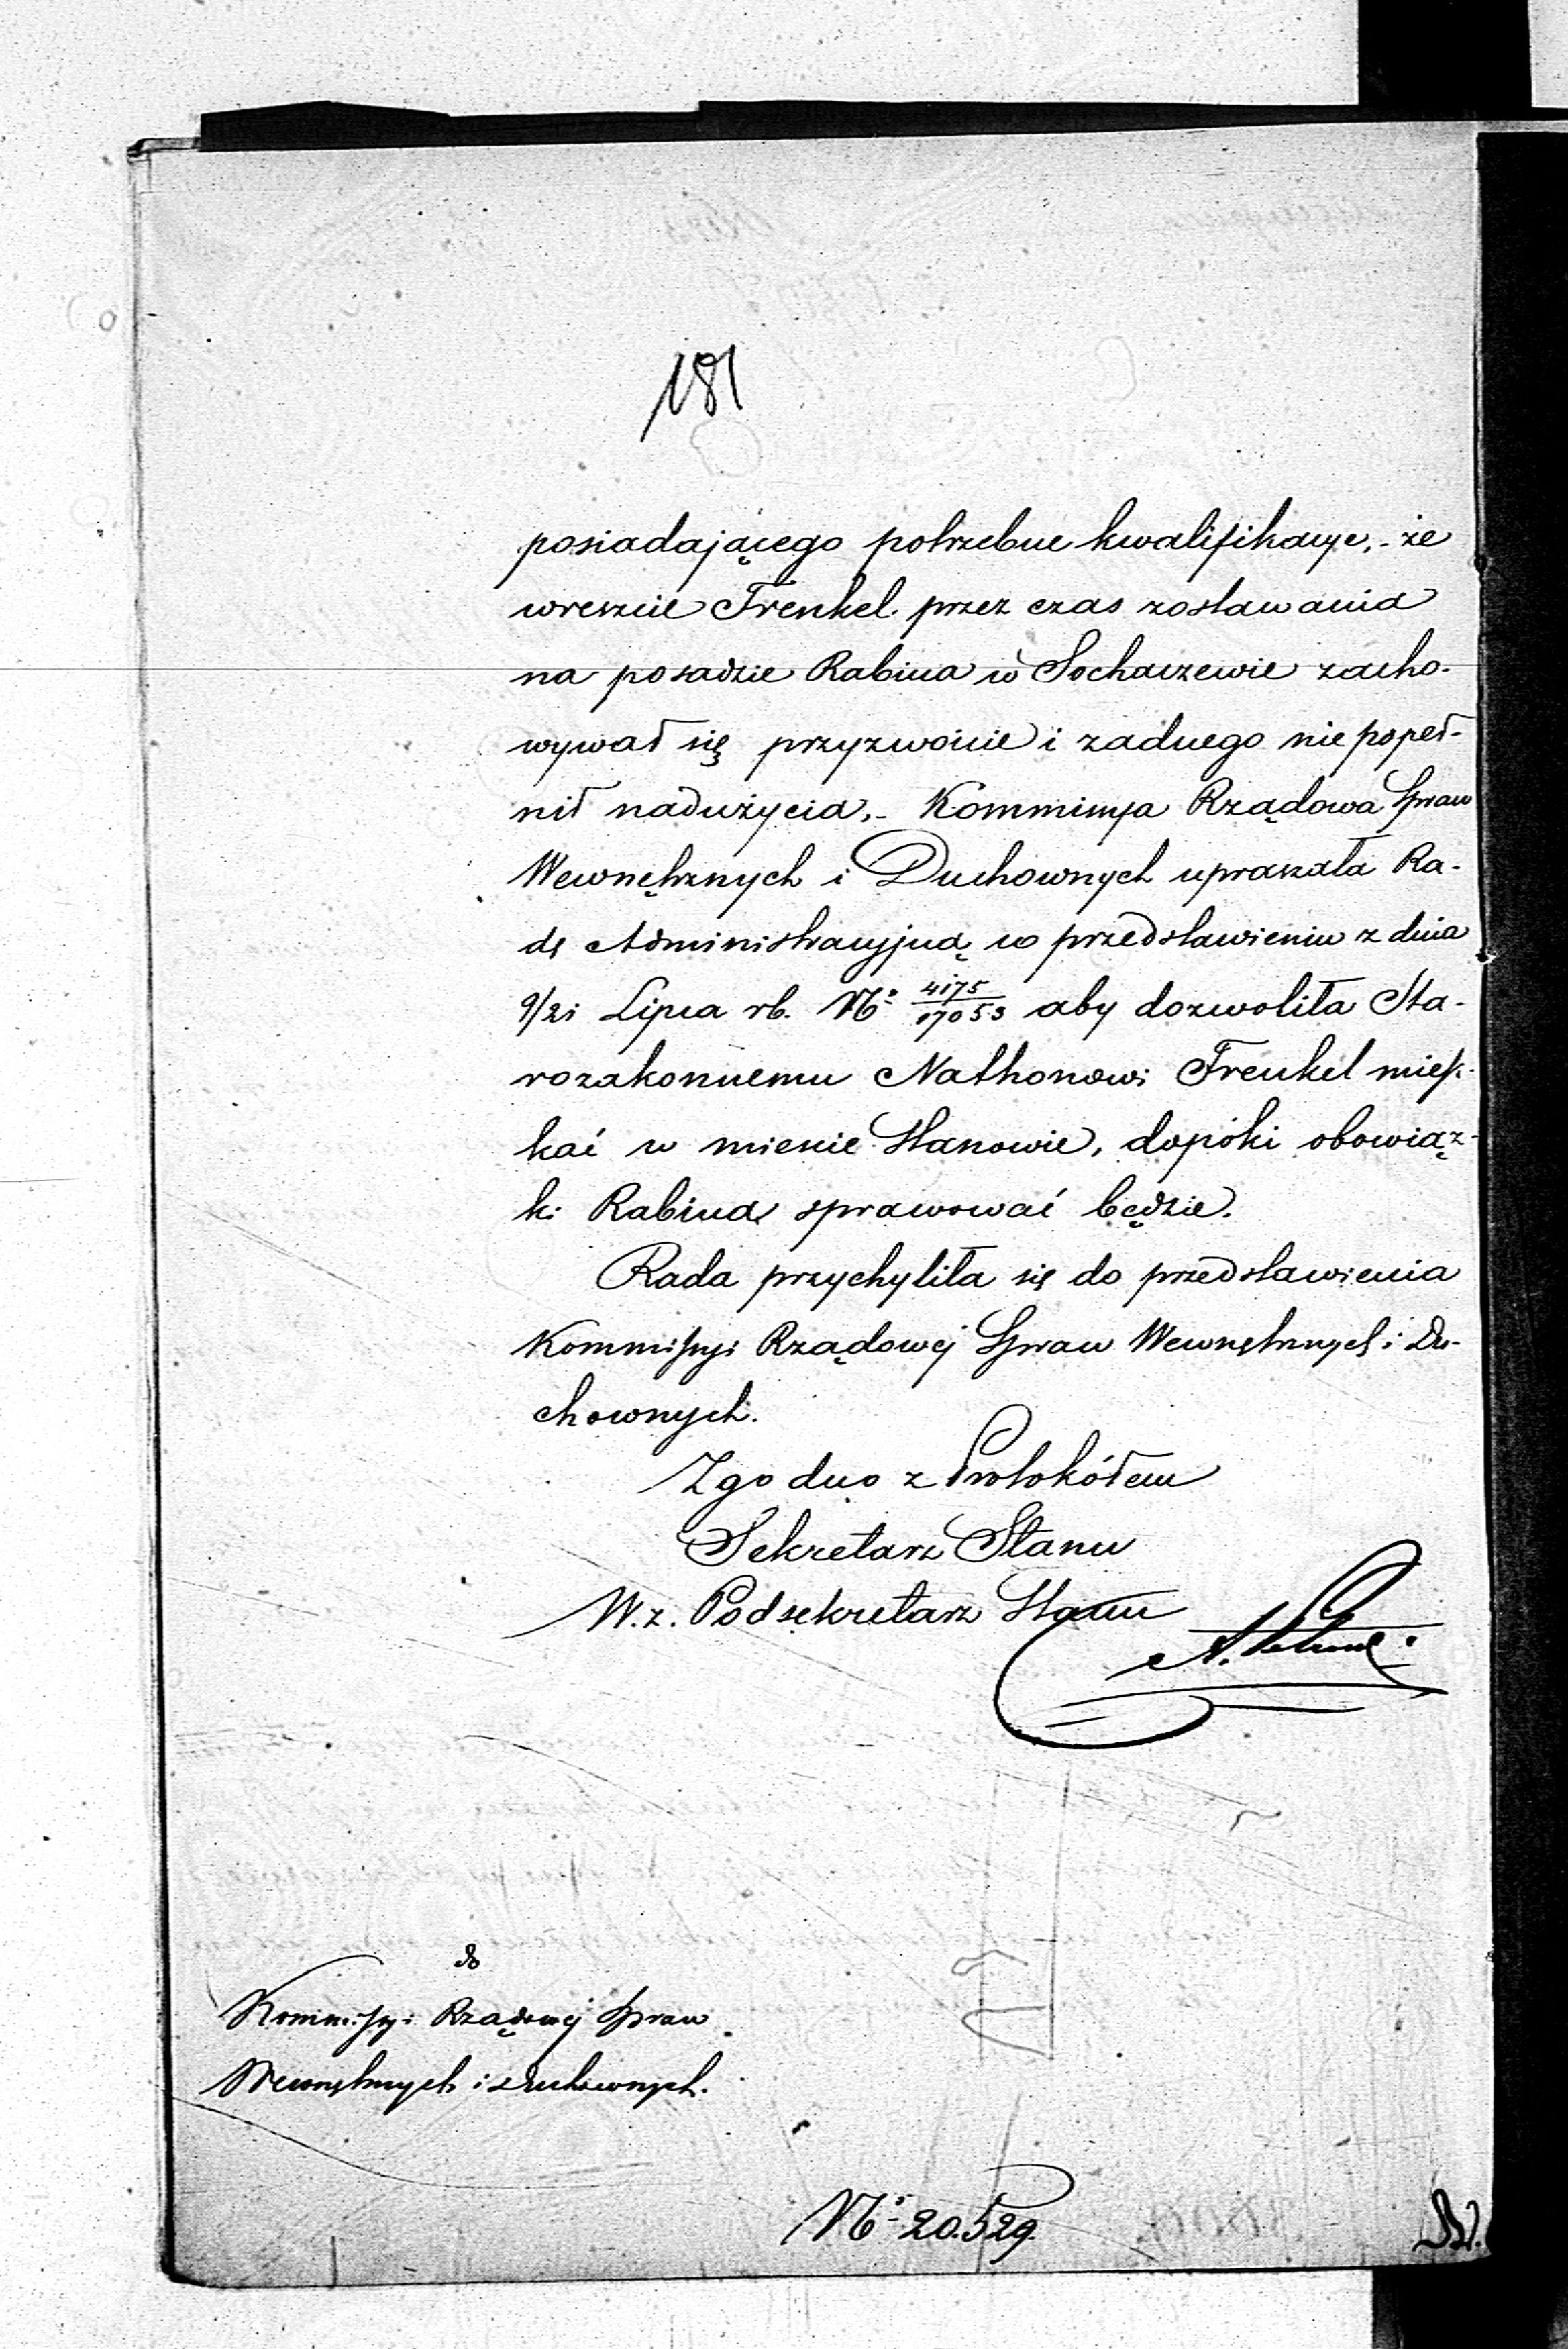 181
posiadającego potrzebne kwalifikacye, - że
wreszcie Frenkel przez czas zostawania
na posadzie Rabina w Sochaczewie zacho-
wywał się przyzwoicie i żadnego nie popeł-
nił nadużycia, - Kommissya Rządowa Spraw
Wewnętrznych i Duchownych upraszała Ra-
dę Administracyjną w przedstawieniu z dnia
9/21 Lipca rb. No 4175/17053 aby dozwoliła Sta-
rozakonnemu Nathonowi Frenkel miesz-
kać w mieście Stanowie, dopóki obowiąz-
ki Rabina sprawować będzie.
Rada przychyliła się do przedstawienia
Kommissyi Rządowej Spraw Wewnętrznych i Du-
chownych.
Zgodno z Protokółem
Sekretarz Stanu
W. z. Podsekretarz Stanu
do
Kommissyi Rządowej Spraw
Wewnętrznych i Duchownych.
No 20.529.